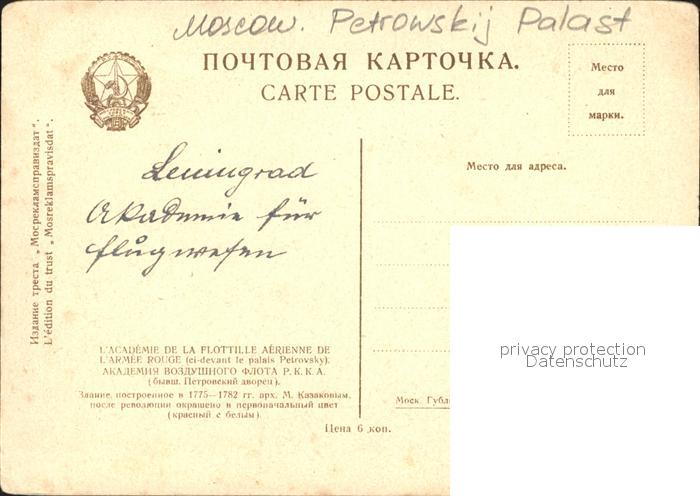 Moscow. Petrowskij Palast
ПОЧТОВАЯ КАРТОЧКА.
CARTE POSTALE.
Место
для
марки.
Место для адреса.
Издание треста „Мосрекламсправиздат“.
L'édition du trust „Mosreklamspravisdat“.
Leningrad
Akademie für
flugwesen
L'ACADÉMIE DE LA FLOTTILLE AÉRIENNE DE
L'ARMÉE ROUGE (ci-devant le palais Petrovsky).
АКАДЕМИЯ ВОЗДУШНОГО ФЛОТА Р.К.К.А.
(бывш. Петровский дворец).
Здание, построенное в 1775—1782 гг. арх. М. Казаковым,
после революции окрашено в первоначальный цвет
(красный с белым).
Цена 6 коп.
Моск. Губл
privacy protection
Datenschutz